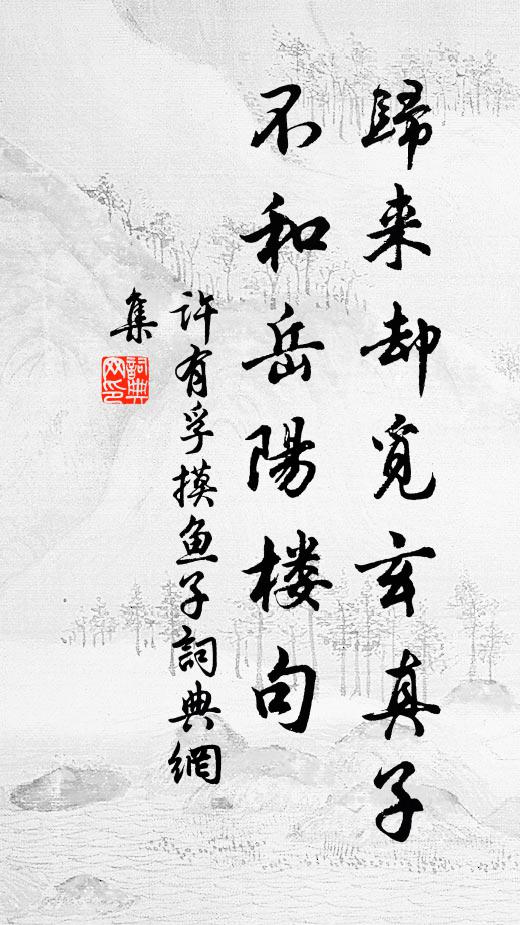 歸来却覓玄真子
不和岳陽楼句
许有孚摸鱼子詞典網
集
詞典
网印